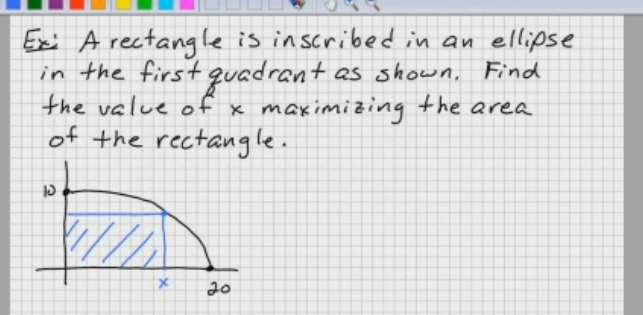 Ex: A rectangle is inscribed in an ellipse
in the first quadrant as shown. Find
the value of x maximizing the area
of the rectangle.
10
x
20